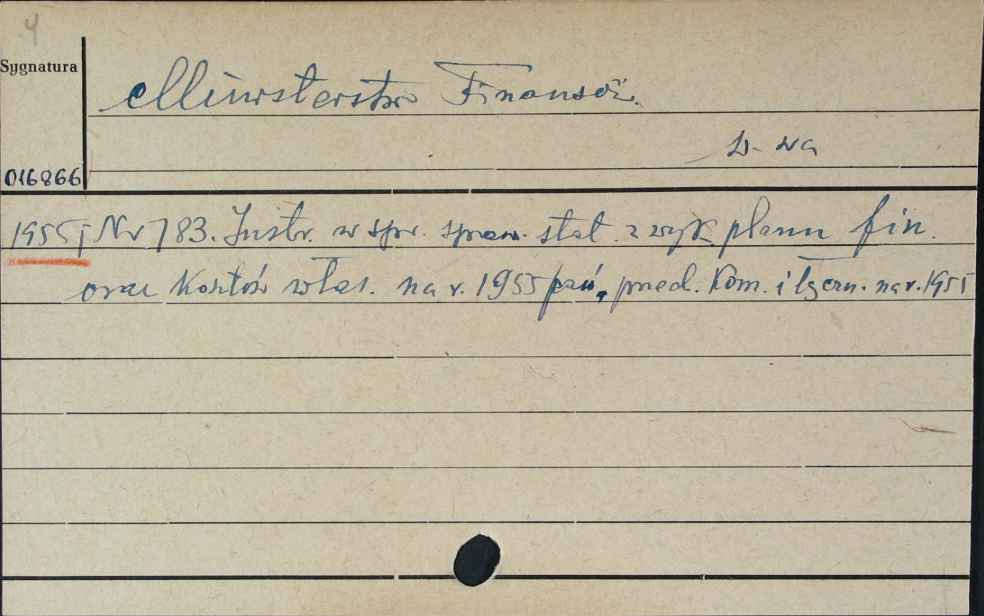 4
Sygnatura
Ministerstwo Finansów.
W-wa
016866
1955, Nr 783. Instr. w spr. spraw. stat. z wyk planu fin.
oraz Kosztów włas. na r. 1955 przed. Kom. i na r. 1955